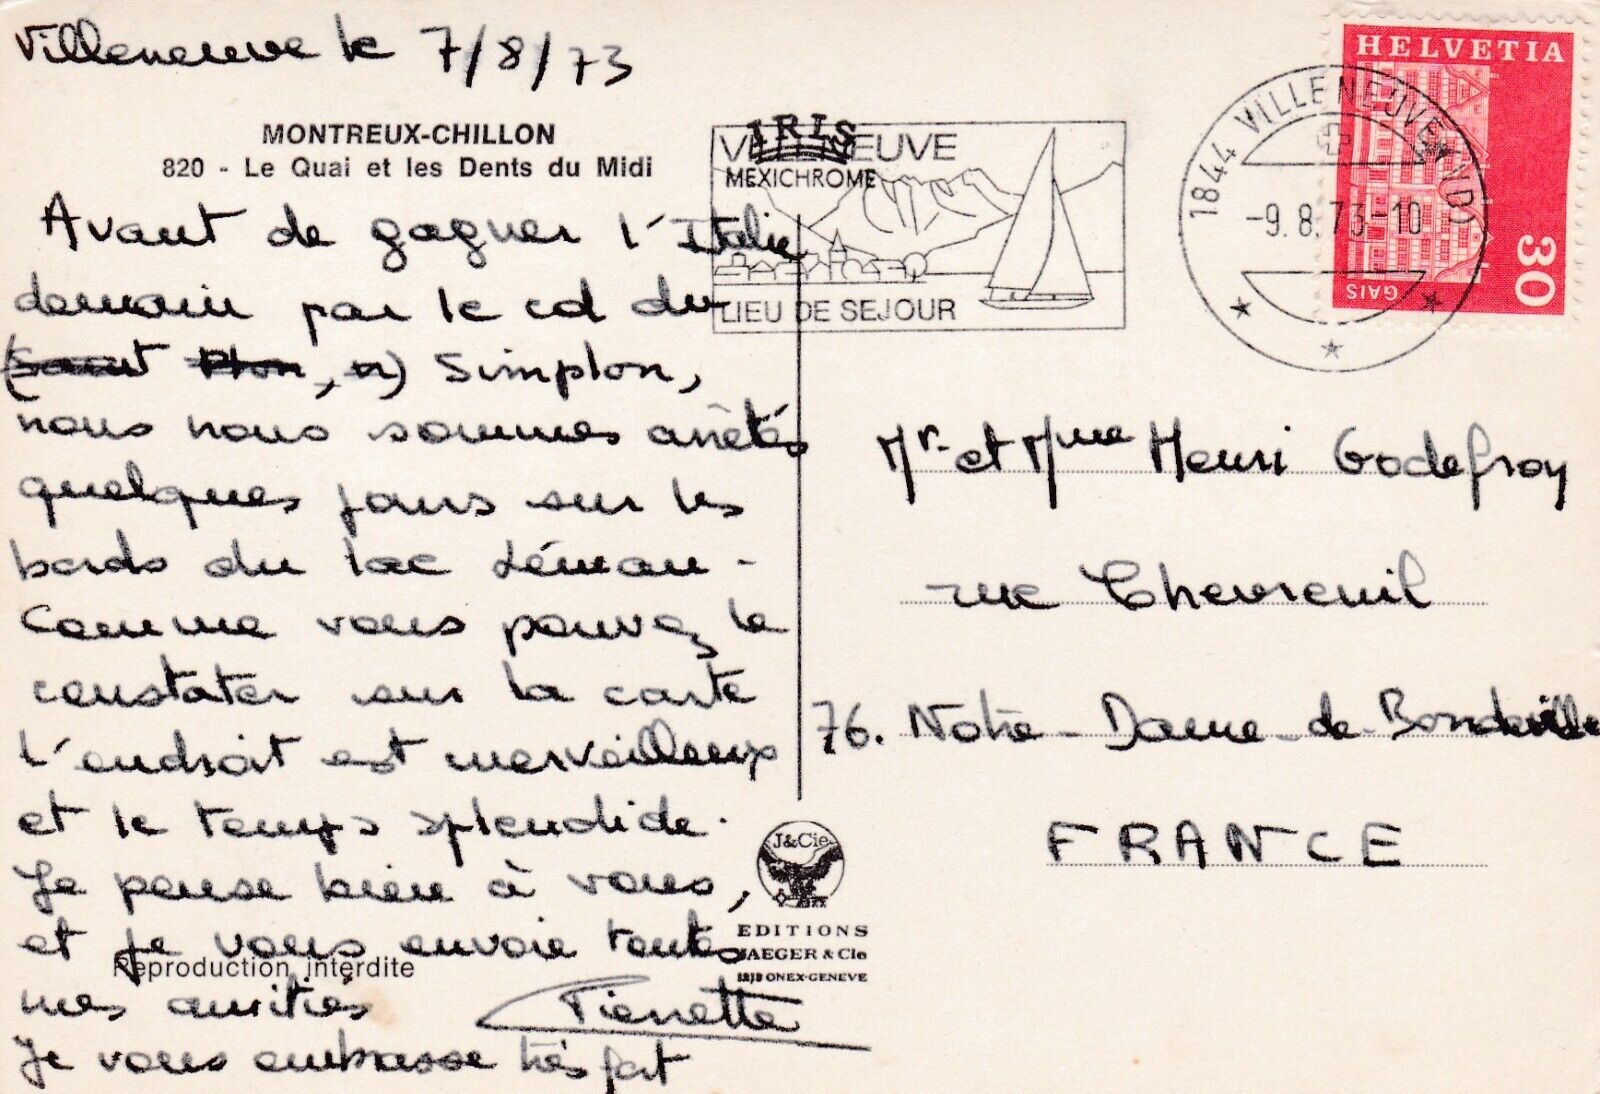 Villeneuve le 7/8/73
MONTREUX-CHILLON
820 - Le Quai et les Dents du Midi
Avant de gagner l'Italie
demain par le col du
(Saint Plon, n) Simplon,
nous nous sommes arrêtés
quelques jours sur les
bords du lac Léman -
Comme vous pouvez le
constater sur la carte
l'endroit est merveilleux
et le temps splendide.
Je pense bien à vous,
et je vous envoie toutes
Reproduction interdite
mes amitiés Pierrette
Je vous embrasse très fort
IRIS
MEXICHROME
VILLENEUVE
LIEU DE SEJOUR
1844 VILLENEUVE (VD)
-9.8.73-10
HELVETIA
30
GAIS
Mr. et Mme Henri Godefroy
rue Chevreuil
76. Notre-Dame-de-Bondeville
FRANCE
J&Cie
EDITIONS
JAEGER & Cie
1213 ONEX-GENEVE